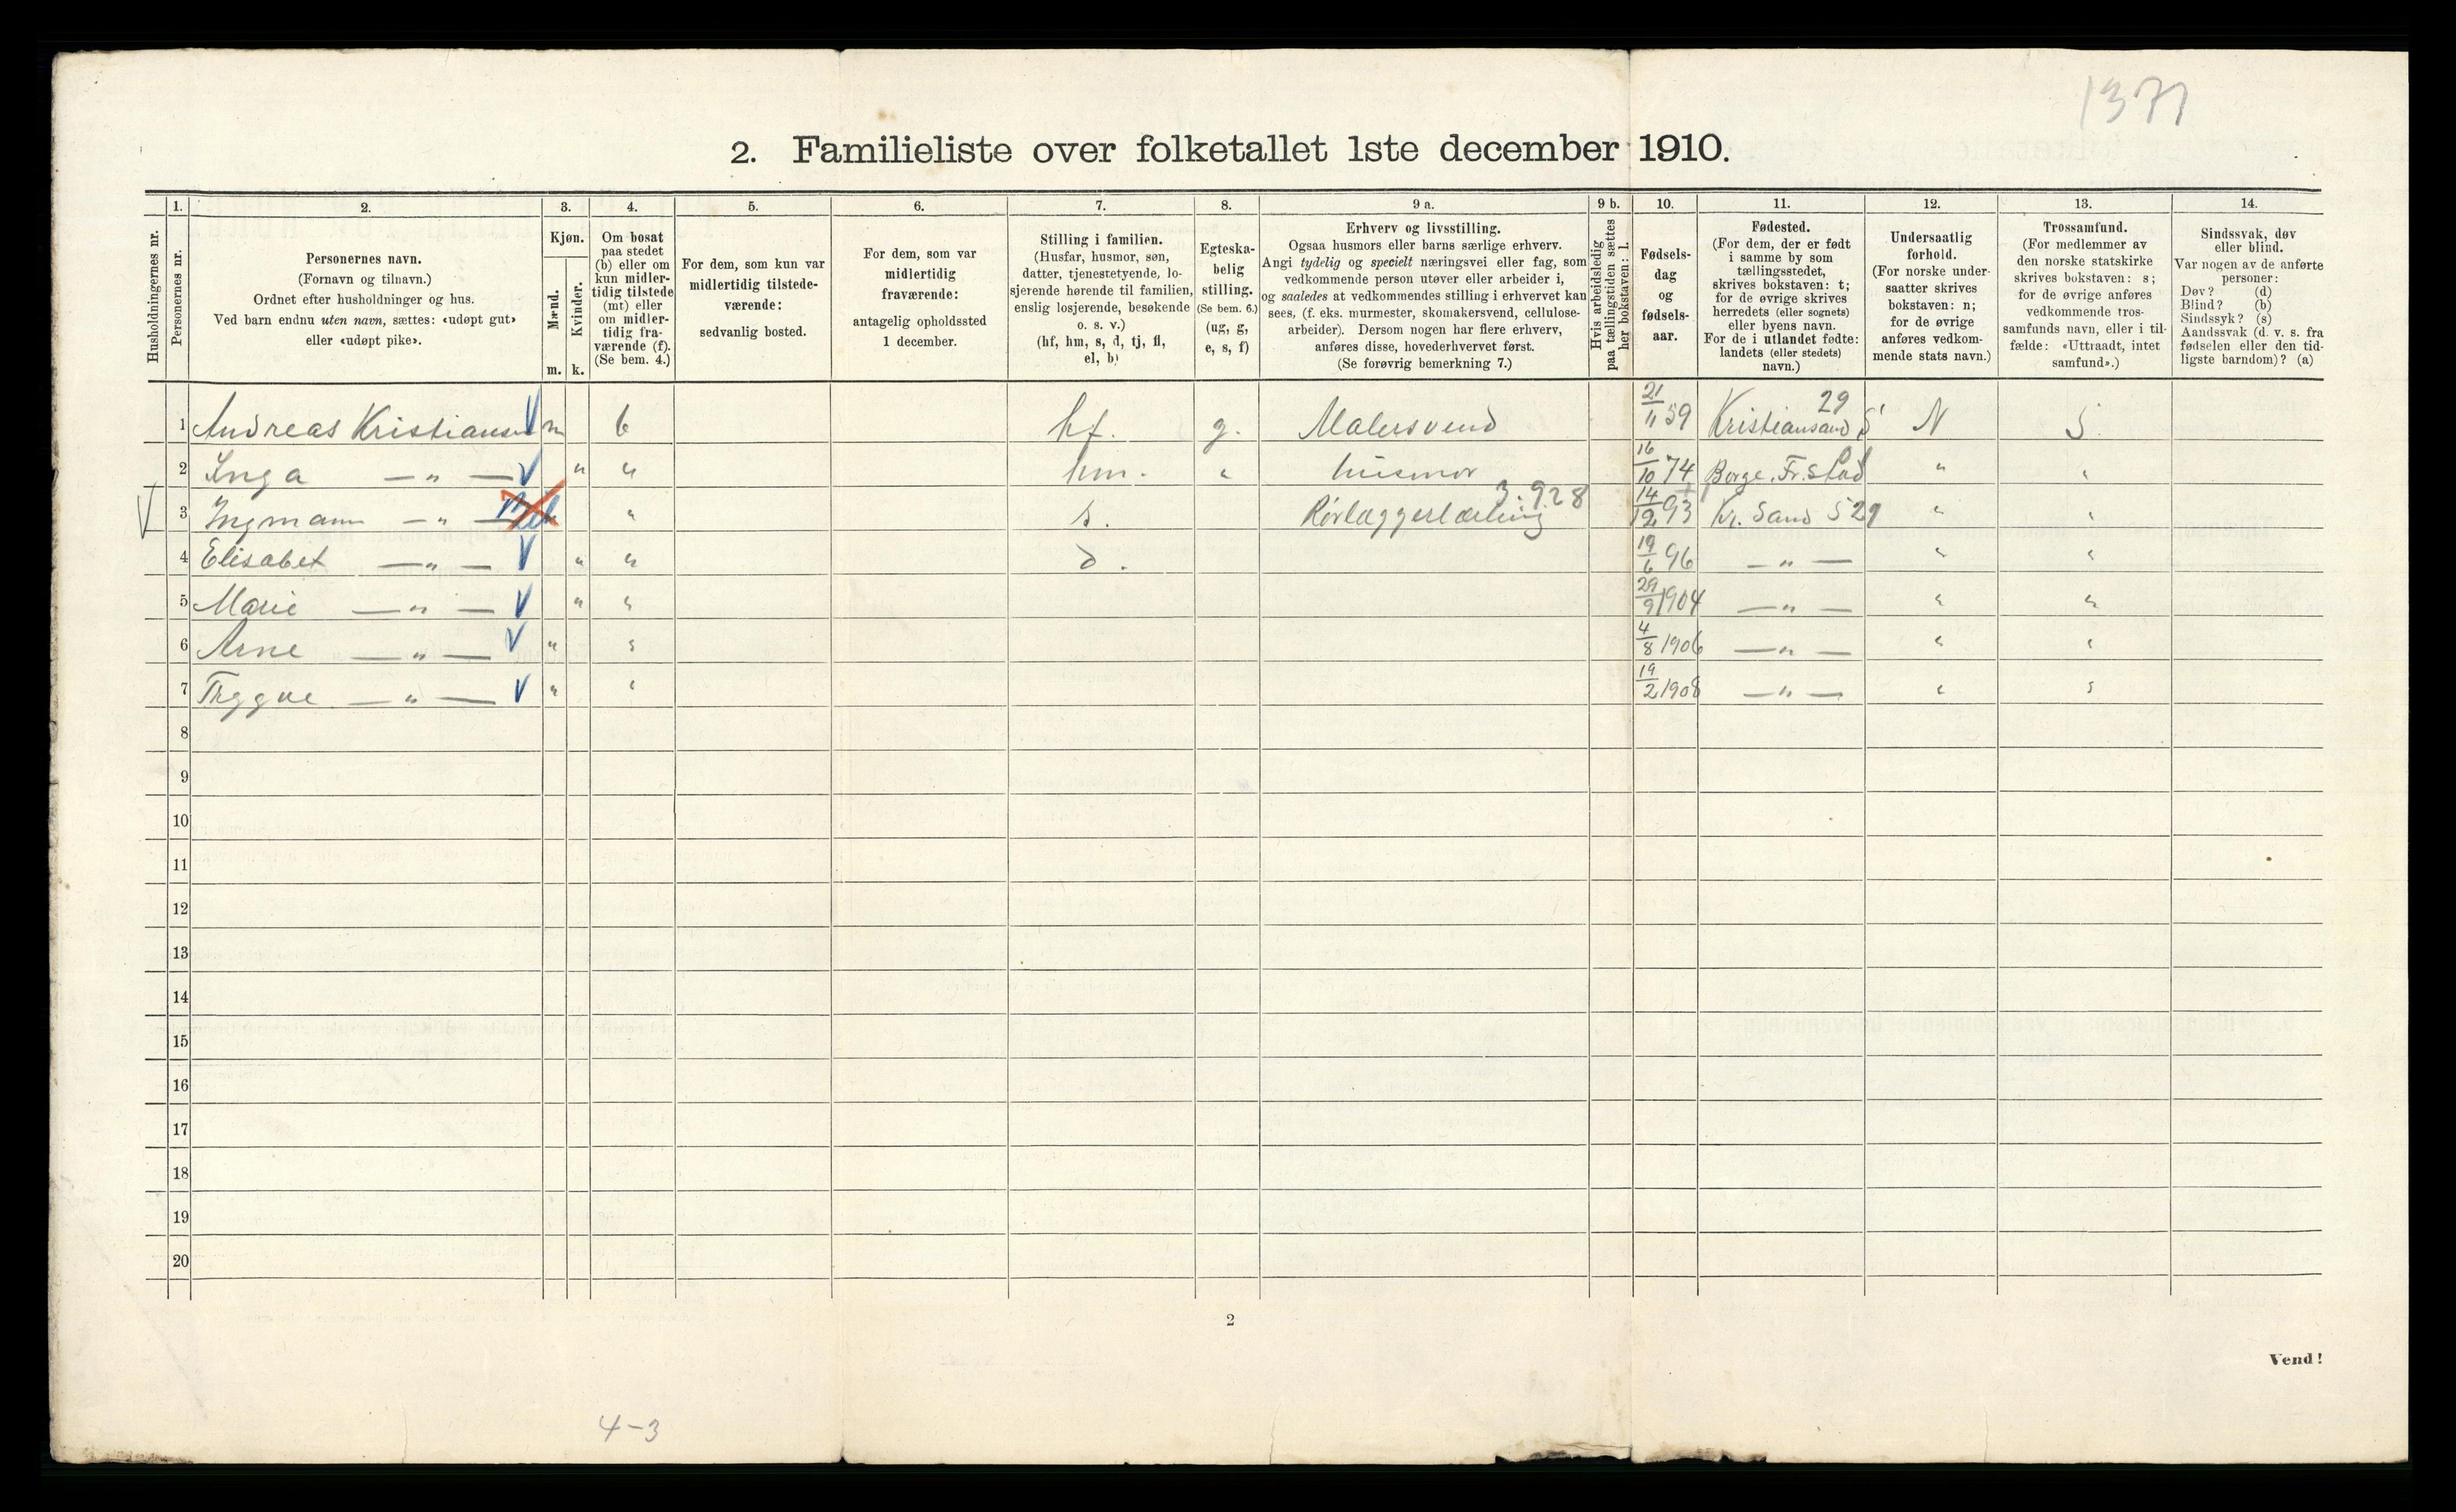 1371
2. Familieliste over folketallet 1ste december 1910.
1. 2. 3. 4. 5. 6. 7. 8. 9 a. 9 b. 10. 11. 12. 13. 14.
Husholdningernes nr.
Personernes nr.
Personernes navn.
(Fornavn og tilnavn.)
Ordnet efter husholdninger og hus.
Ved barn endnu uten navn, sættes: «udøpt gut»
eller «udøpt pike».
Kjøn.
Mænd.
Kvinder.
m. k.
Om bosat
paa stedet
(b) eller om
kun midler-
tidig tilstede
(mt) eller
om midler-
tidig fra-
værende (f).
(Se bem. 4.)
For dem, som kun var
midlertidig tilstede-
værende:
sedvanlig bosted.
For dem, som var
midlertidig
fraværende:
antagelig opholdssted
1 december.
Stilling i familien.
(Husfar, husmor, søn,
datter, tjenestetyende, lo-
sjerende hørende til familien,
enslig losjerende, besøkende
o. s. v.)
(hf, hm, s, d, tj, fl,
el, b)
Egteska-
belig
stilling.
(Se bem. 6.)
(ug, g,
e, s, f)
Erhverv og livsstilling.
Ogsaa husmors eller barns særlige erhverv.
Angi tydelig og specielt næringsvei eller fag, som
vedkommende person utøver eller arbeider i,
og saaledes at vedkommendes stilling i erhvervet kan
sees, (f. eks. murmester, skomakersvend, cellulose-
arbeider). Dersom nogen har flere erhverv,
anføres disse, hovederhvervet først.
(Se forøvrig bemerkning 7.)
Hvis arbeidsledig
paa tællingstiden sættes
her bokstaven: l.
Fødsels-
dag
og
fødsels-
aar.
Fødested.
(For dem, der er født
i samme by som
tællingsstedet,
skrives bokstaven: t;
for de øvrige skrives
herredets (eller sognets)
eller byens navn.
For de i utlandet fødte:
landets (eller stedets)
navn.)
Undersaatlig
forhold.
(For norske under-
saatter skrives
bokstaven: n;
for de øvrige
anføres vedkom-
mende stats navn.)
Trossamfund.
(For medlemmer av
den norske statskirke
skrives bokstaven: s;
for de øvrige anføres
vedkommende tros-
samfunds navn, eller i til-
fælde: «Uttraadt, intet
samfund».)
Sindssvak, døv
eller blind.
Var nogen av de anførte
personer:
Døv? (d)
Blind? (b)
Sindssyk? (s)
Aandssvak (d. v. s. fra
fødselen eller den tid-
ligste barndom)? (a)
1 Andreas Kristiansen V m b hf. g. Malersvend 21/11 59 Kristiansand S 29 N S.
2 Inga — „ — V „ „ hm. „ husmor 16/10 74 Borge. Fr.stad „ „
V 3 Ingmann — „ — „ s. Rørlæggerlærling 3.928 14/12 93 Kr. Sand S 29 „ „
4 Elisabet — „ — V „ „ d. 19/6 96 — „ — „ „
5 Marie — „ — V „ „ 29/9 1904 — „ — „ „
6 Arne — „ — V „ „ 4/8 1906 — „ — „ „
7 Trygve — „ — V „ „ 19/2 1908 — „ — „ „
8
9
10
11
12
13
14
15
16
17
18
19
20
2
Vend!
4-3